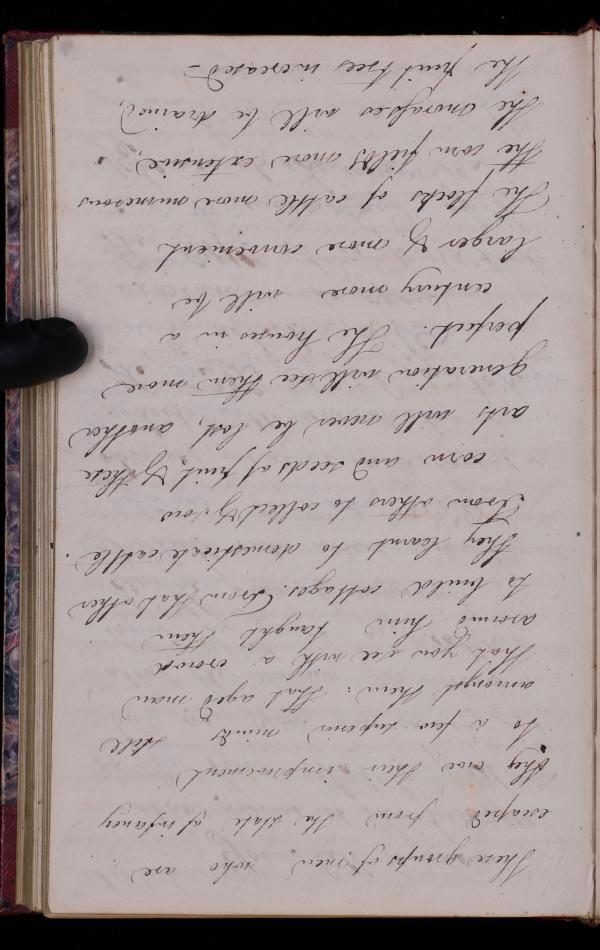 These groups of men who are
escaped from the state of infancy
they owe their improvement
to a few superior minds still
amongst them: that aged man
that you see with a crowd
around him taught them
to build cottages. From that other
they learnt to domesticate cattle
From others to collect & sow
corn and seeds of fruit & these
arts will never be lost, another
generation will see them more
perfect. The houses in a
century more will be
larger & more convenient
The flocks of cattle more numerous
The corn fields more extensive,
The morasses will be drained,
The fruit trees increased -